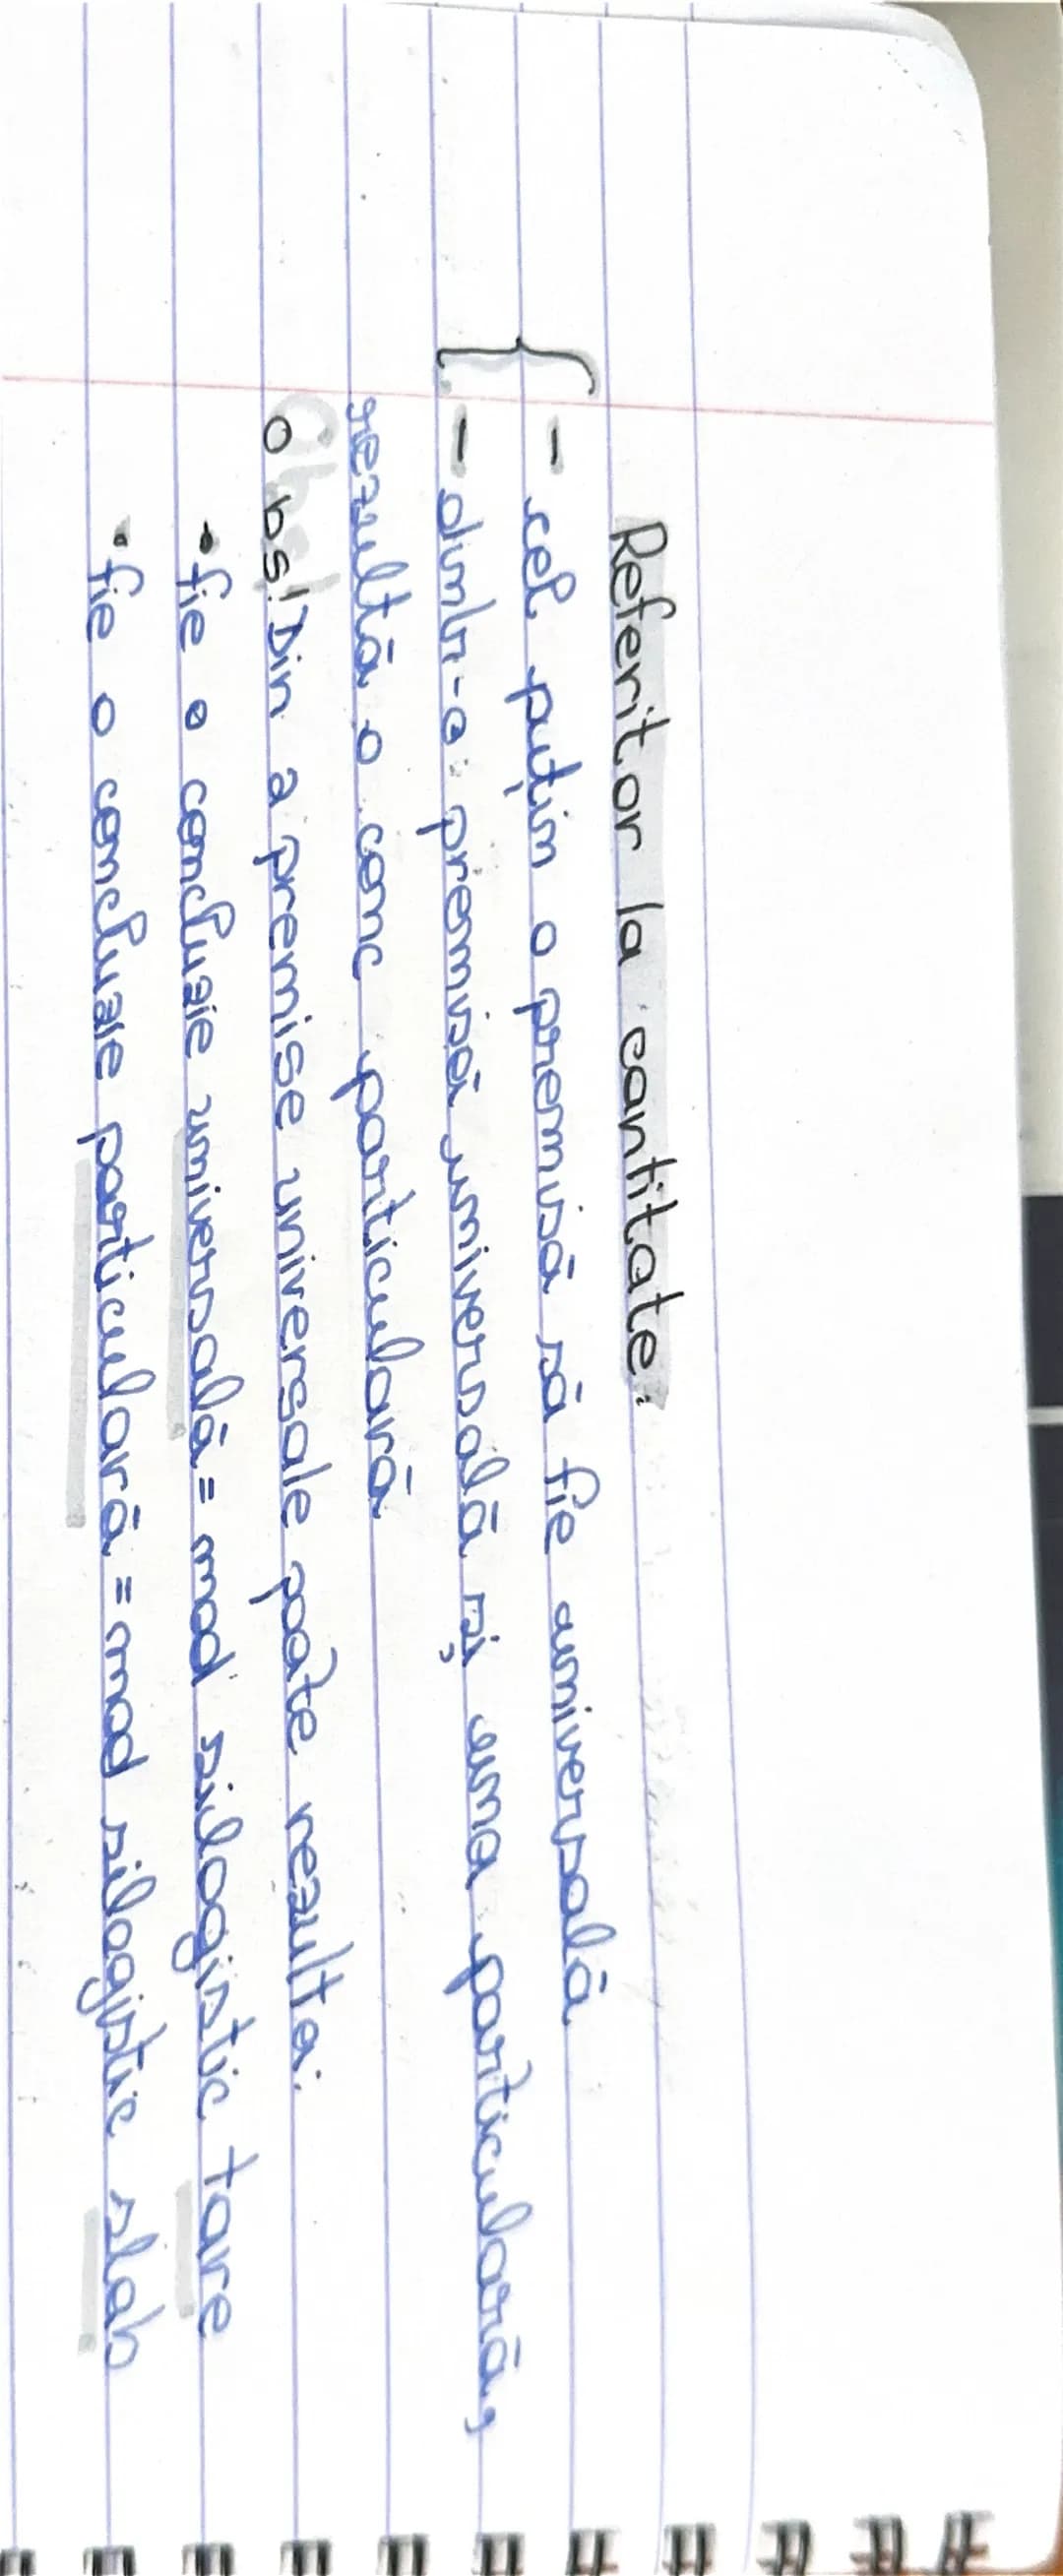 Referitor la cantitate:
- cel puțin o premisă să fie universală
- dintr-o premisă universală și una particulară,
rezultă o conc particulară
Obs! Din 2 premise universale poate rezulta:
• fie o concluzie universală = mod silogistic tare
• fie o concluzie particulară = mod silogistic slab